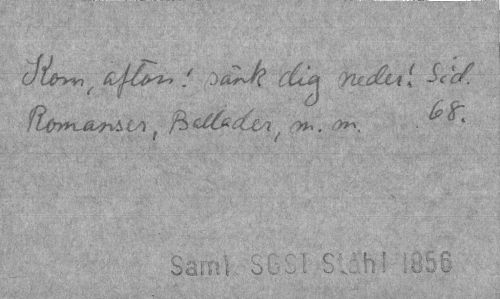 Kom, afton! sänk dig neder! Sid.
Romanser, Ballader, m.m. 68.
Saml. SGSI Ståhl 1856